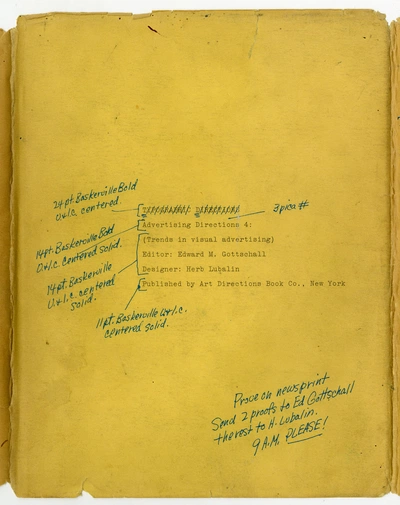 24 pt. Baskerville Bold
U.& l.c. centered.
3 pica #
Advertising Directions 4:
14 pt. Baskerville Bold
U.& l.c. centered solid.
(Trends in visual advertising)
Editor: Edward M. Gottschall
14 pt. Baskerville
U.& l.c. centered
solid.
Designer: Herb Lubalin
Published by Art Directions Book Co., New York
11 pt. Baskerville U.& l.c.
centered solid.
Prove on newsprint
Send 2 proofs to Ed Gottschall
the rest to H. Lubalin.
9 A.M. PLEASE!